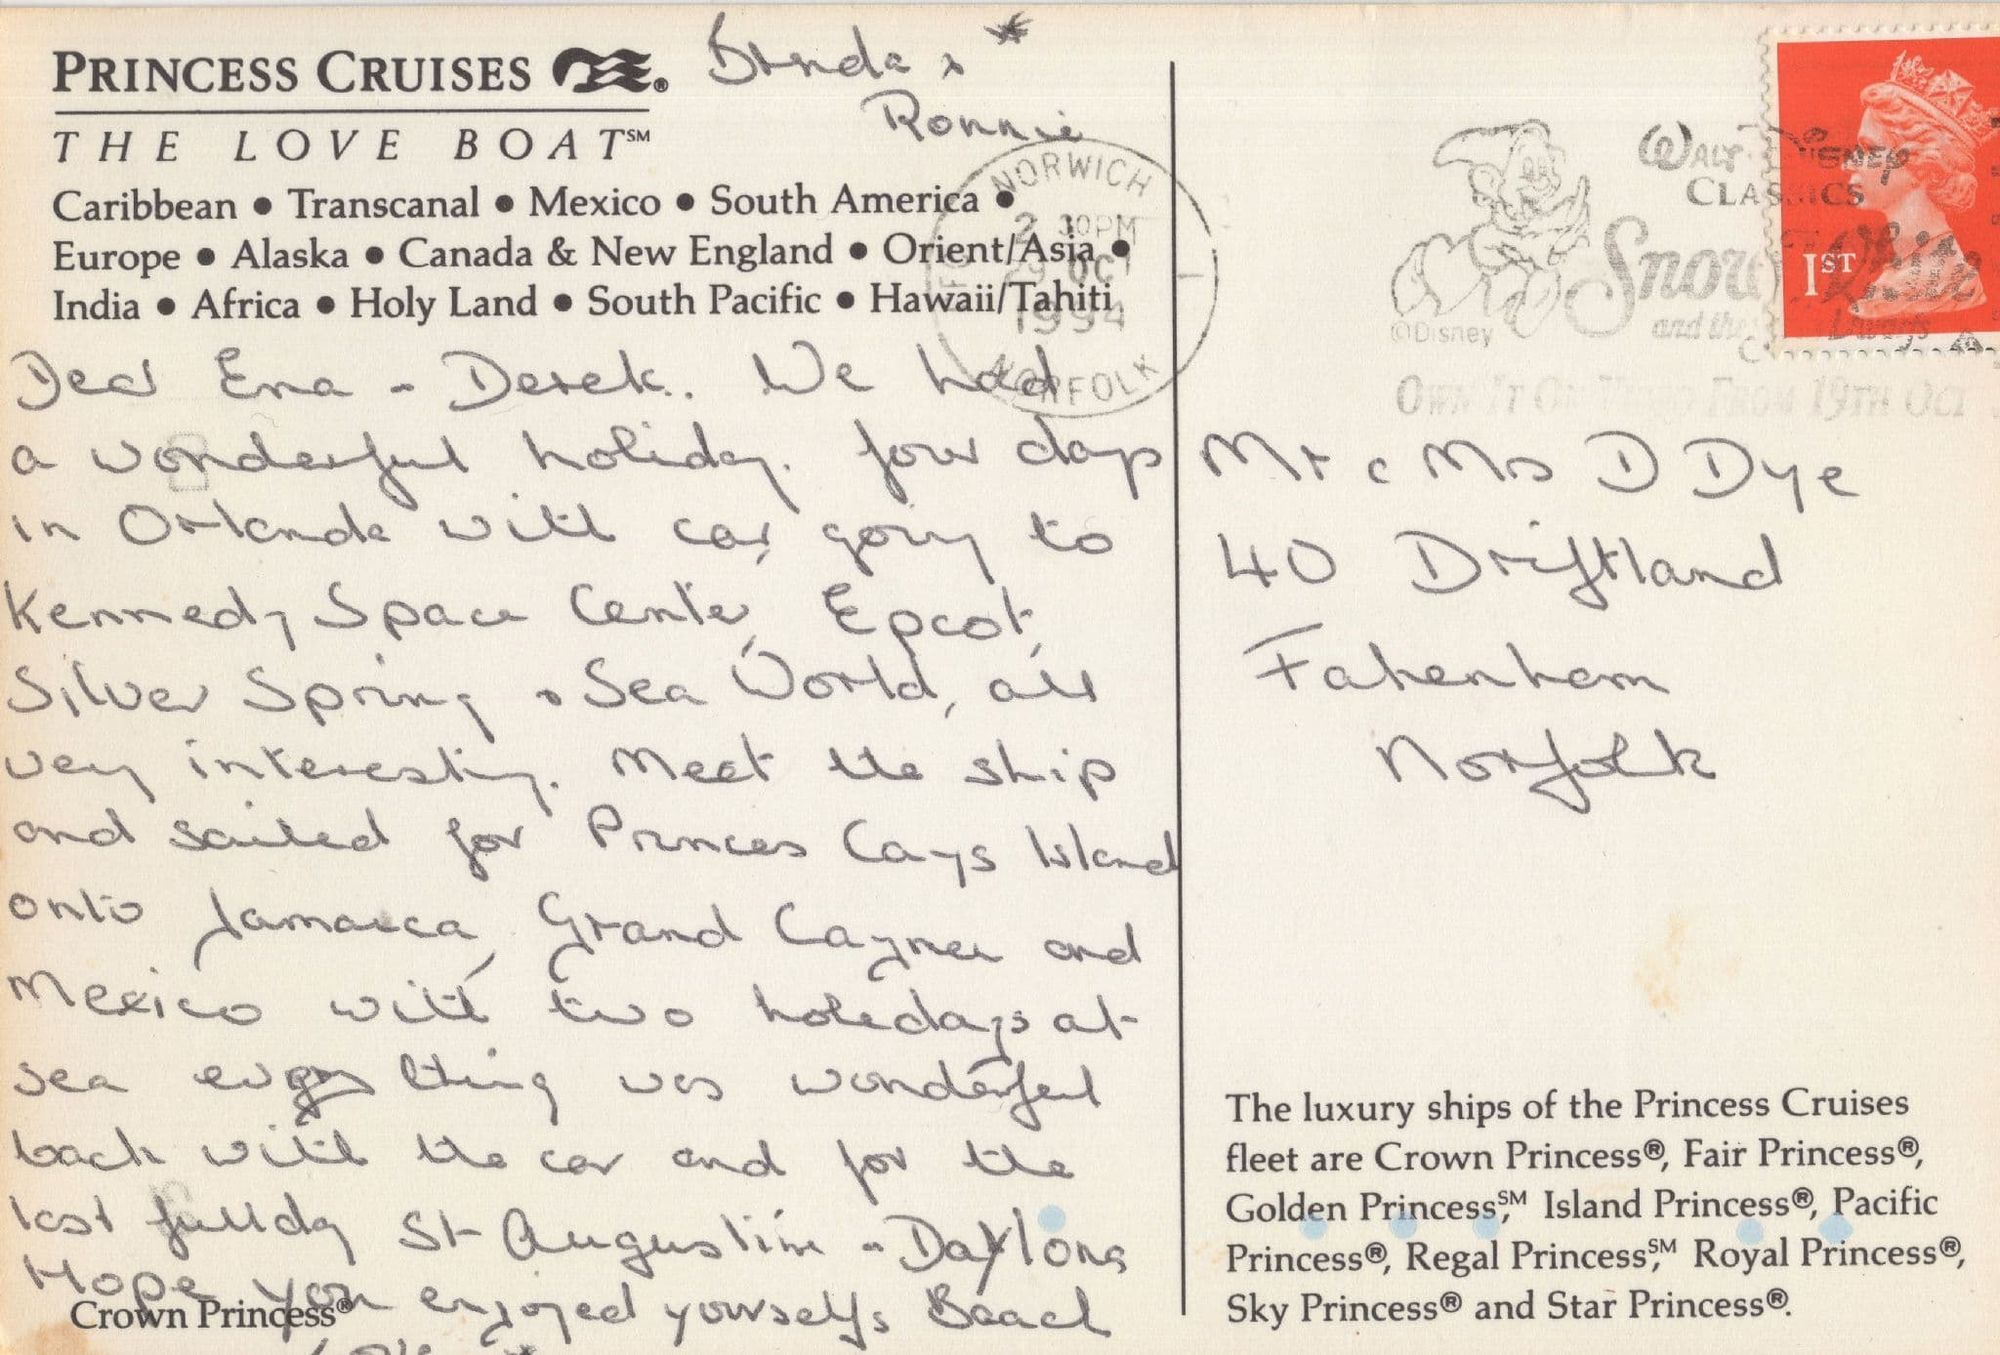 PRINCESS CRUISES ®
THE LOVE BOAT℠
Caribbean • Transcanal • Mexico • South America •
Europe • Alaska • Canada & New England • Orient/Asia •
India • Africa • Holy Land • South Pacific • Hawaii/Tahiti
Dear Ena - Derek. We had
a wonderful holiday. four days
in Orlando with car, going to
Kennedy Space Center, Epcot,
Silver Spring & Sea World, all
very interesting. Meet the ship
and sailed for Princes Cays Island
onto Jamaica, Grand Cayman and
Mexico with two holidays at
sea every thing was wonderful
back with the car and for the
last fullday St Augustine - Daytona
Hope you enjoyed yourselfs Beach
Love *
* 
Ronnie
Crown Princess®
NORWICH
2 30PM
29 OCT
1994
NORFOLK
WALT DISNEY
CLASSICS
Snow White
and the Dwarfs
©Disney
OWN IT ON VIDEO FROM 19TH OCT
1ST
Mr & Mrs D Dye
40 Driftland
Fakenham
Norfolk
The luxury ships of the Princess Cruises
fleet are Crown Princess®, Fair Princess®,
Golden Princess,℠ Island Princess®, Pacific
Princess®, Regal Princess,℠ Royal Princess®,
Sky Princess® and Star Princess®.